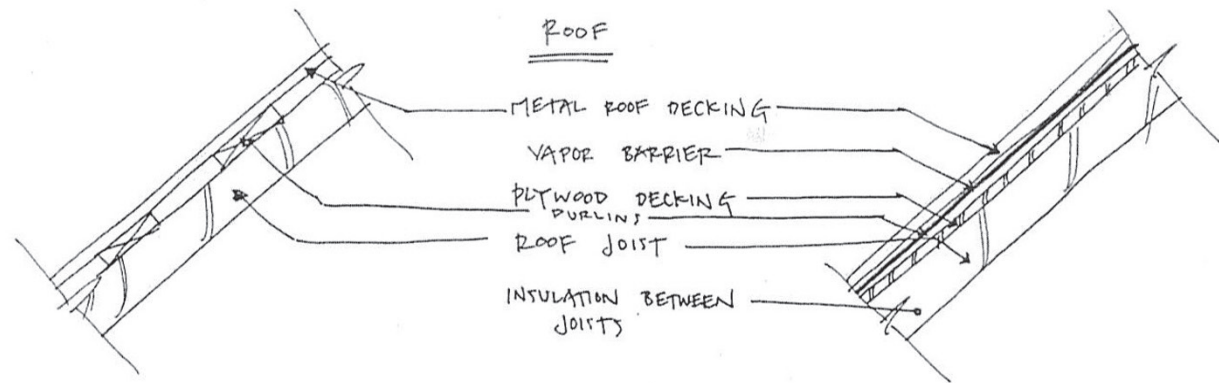 ROOF
METAL ROOF DECKING
VAPOR BARRIER
PLYWOOD DECKING
PURLINS
ROOF JOIST
INSULATION BETWEEN
JOISTS